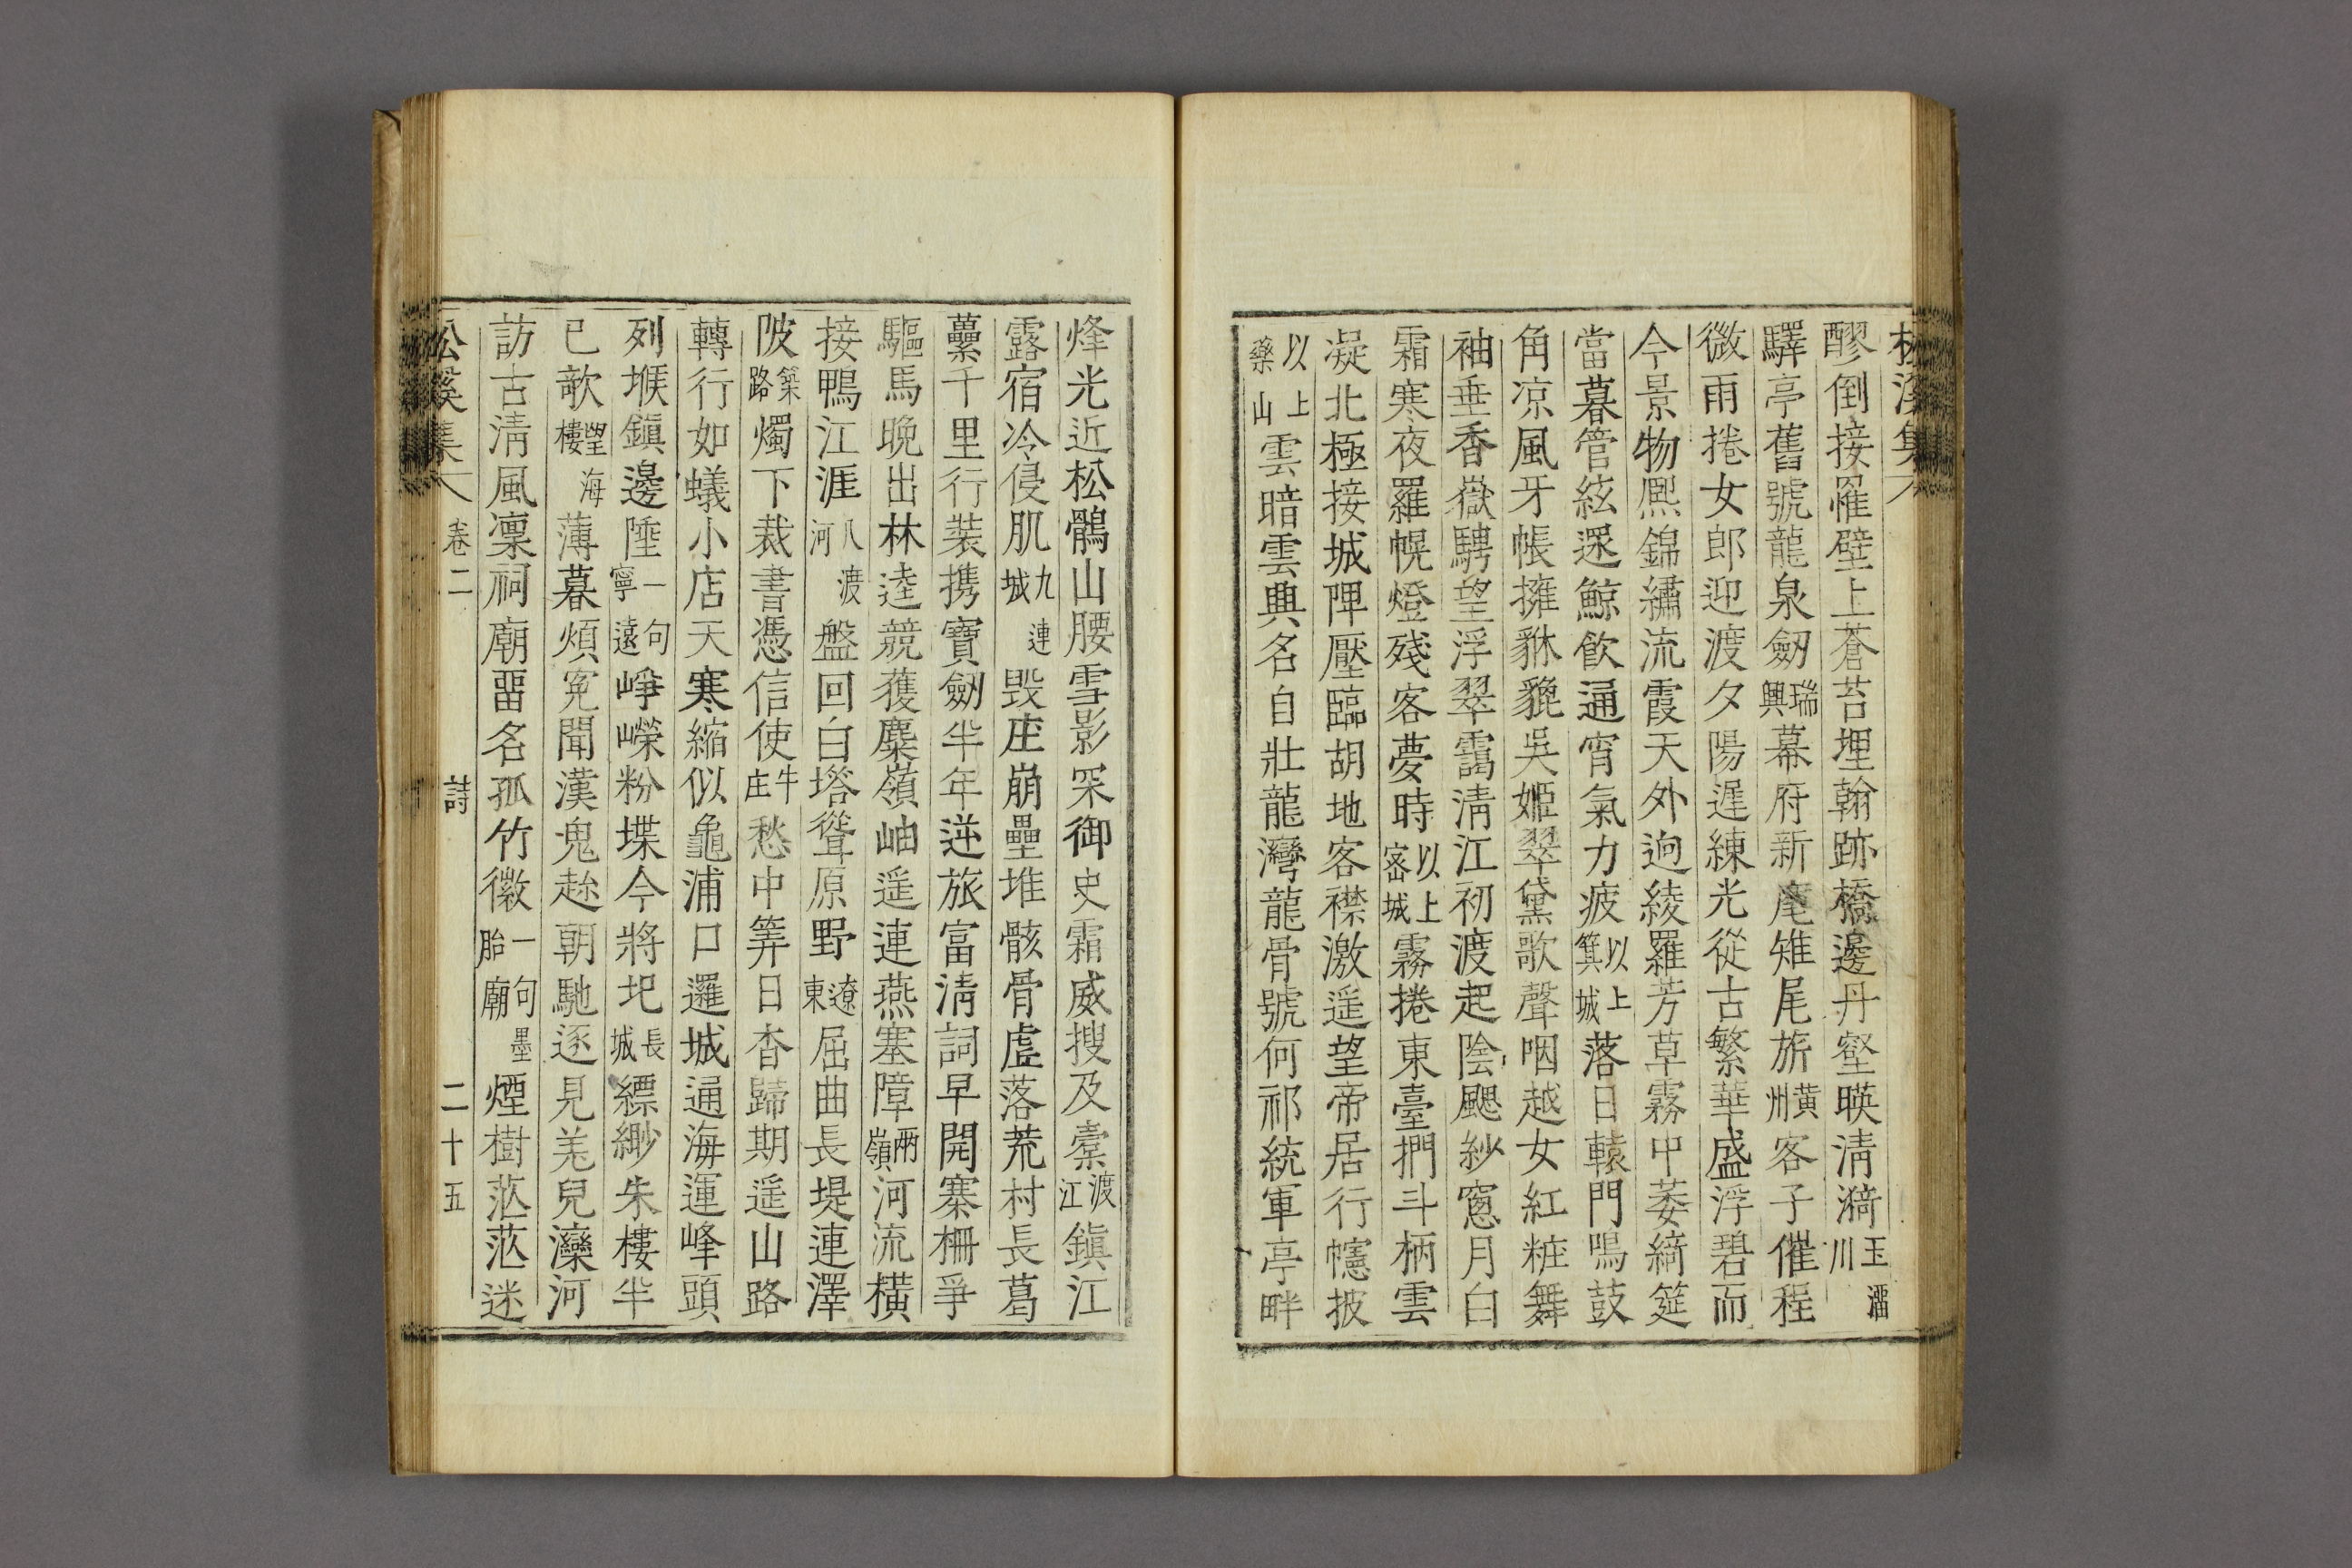 松溪集
醪倒接䍦壁上蒼苔埋翰跡橋邊丹壑暎淸漪玉溜川
驛亭舊號龍泉劒瑞興幕府新麾雉尾旂黄州客子催程
微雨捲女郎迎渡夕陽遲練光從古繁華盛浮碧而
今景物熈錦繡流霞天外逈綾羅芳草霧中萎綺筵
當暮管絃遝鯨飮通宵氣力疲以上箕城落日轅門鳴鼓
角凉風牙帳擁貅貔吳姬翠黛歌聲咽越女紅粧舞
袖垂香嶽騁望浮翠靄淸江初渡起陰颸紗窓月白
霜寒夜羅幌燈殘客夢時以上密城霧捲東臺捫斗柄雲
凝北極接城陴壓臨胡地客襟激遥望帝居行幰披
以上藥山雲暗雲興名自壯龍灣龍骨號何祁統軍亭畔
烽光近松鶻山腰雪影罙御史霜威搜及槖渡江鎭江
露宿冷侵肌九連城毁庄崩壘堆骸骨虛落荒村長葛
虆千里行裝携寶劒半年逆旅富淸詞早開寨柵爭
驅馬晩出林逵競獲麋嶺岫遥連燕塞障兩嶺河流横
接鴨江涯八渡河盤回白塔聳原野遼東屈曲長堤連澤
陂築路燭下裁書憑信使牛庄愁中筭日杳歸期遥山路
轉行如蟻小店天寒縮似龜浦口邏城通海運峰頭
列堠鎭邊陲一句寧遠崢嶸粉堞今將圯長城縹緲朱樓半
已欹望海樓薄暮煩寃聞漢鬼趂朝馳逐見羌兒灤河
訪古淸風凜祠廟畱名孤竹徽一句墨胎廟煙樹茫茫迷
松溪集 卷二 詩 二十五